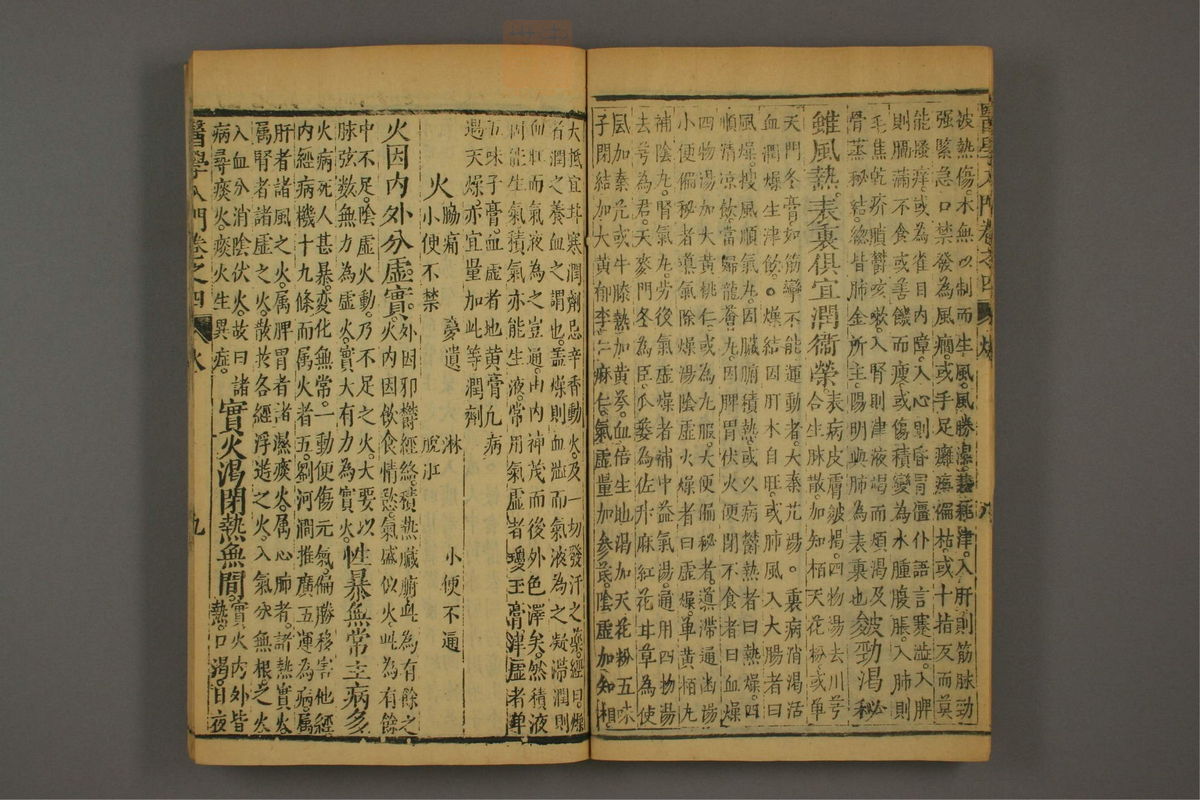 醫學入門卷之四 燥 八
被熱傷。木無以制而生風。風勝濕熱耗津。入肝則筋脉勁
强緊急。口禁發為風癇。或手足癱瘓偏枯。或十指反而莫
能搔痒。或為雀目內障。入心則昏冒僵仆語言蹇澁。入脾
則膈滿不食或善饑而瘦或傷積變為水腫腹脹。入肺則
毛焦乾疥膹鬱咳嗽。入腎則津液竭而煩渴及
骨蒸秘結。總皆肺金所主。陽明與肺為表裏也皴勁渴秘
雖風熱。表裏俱宜潤衛榮。表病皮膚皴揭。四物湯去川芎
合生脉散。加知栢天花粉。或單
天門冬膏。如筋攣不能運動者。大秦艽湯。裏病消渴活
血潤燥生津飲。燥結因肝木自旺。或肺風入大腸者曰
風燥。搜風順氣丸。因臟腑積熱或久病鬱熱者曰熱燥。四
順清涼飲。當歸龍薈丸。因脾胃伏火便閉不食者曰血燥
四物湯加大黃桃仁。或為丸服。大便偏秘者。導滯通幽湯
小便偏秘者導氣除燥湯。陰虛火燥者曰虛燥。單黃栢丸
補陰丸。腎氣丸。勞後氣虛燥者。補中益氣湯。通用四物湯
去芎為君。天麥門冬為臣。瓜蔞為佐。升麻紅花甘草為使
風加秦艽或牛膝。熱加黃芩。血倍生地。渴加天花粉五味
子閉結加大黃郁李仁麻仁。氣虛量加參芪。陰虛加知栢。
大抵宜甘寒潤劑忌辛香動火。及一切發汗之藥。經曰燥
者潤之養血之謂也。盖燥則血澁而氣液為之凝滯。潤則
血旺而氣液為之宣通。由內神茂而後外色澤矣。然積液
固能生氣積氣亦能生液。常用氣虛者瓊玉膏。津虛者單
五味子膏。血虛者地黃膏。凡病
遇天燥。亦宜量加此等潤劑
火 脇痛 夢遺 淋 小便不通
小便不禁 脫肛
火因內外分虛實。外因邪鬱經絡。積熱臟腑。此為有餘之
火。內因飲食情慾。氣盛似火。此為有餘
中不足。陰虛火動。乃不足之火。大要以
脉弦数無力為虛火。實大有力為實火。性暴無常主病多
火病死人甚暴。變化無常。一動便傷元氣。偏勝移害他經
內經病機十九條而屬火者五。劉河澗推廣五運為病。屬
肝者諸風之火。屬脾胃者諸濕痰火。屬心肺者。諸熱實火
屬腎者諸虛之火。散於各經浮遊之火。入氣分無根之火
入血分消陰伏火。故曰諸
病尋痰火。痰火生異症。實火渴閉熱無間。實火內外皆
熱。口渴。日夜
醫學入門卷之四 火 九